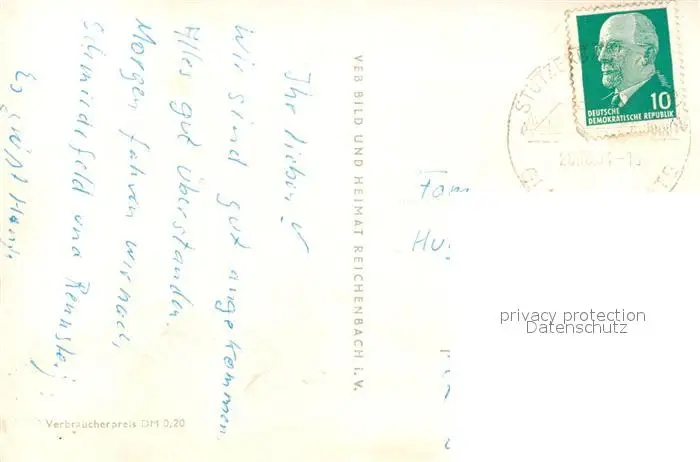 Ihr Lieben!
Wir sind gut angekommen.
Alles gut überstanden.
Morgen fahren wir nach
Schmiedefeld und Rennsteig
Es grüßt
Verbraucherpreis DM 0,20
VEB BILD UND HEIMAT REICHENBACH i. V.
10
DEUTSCHE
DEMOKRATISCHE REPUBLIK
Fam
Hu
privacy protection
Datenschutz